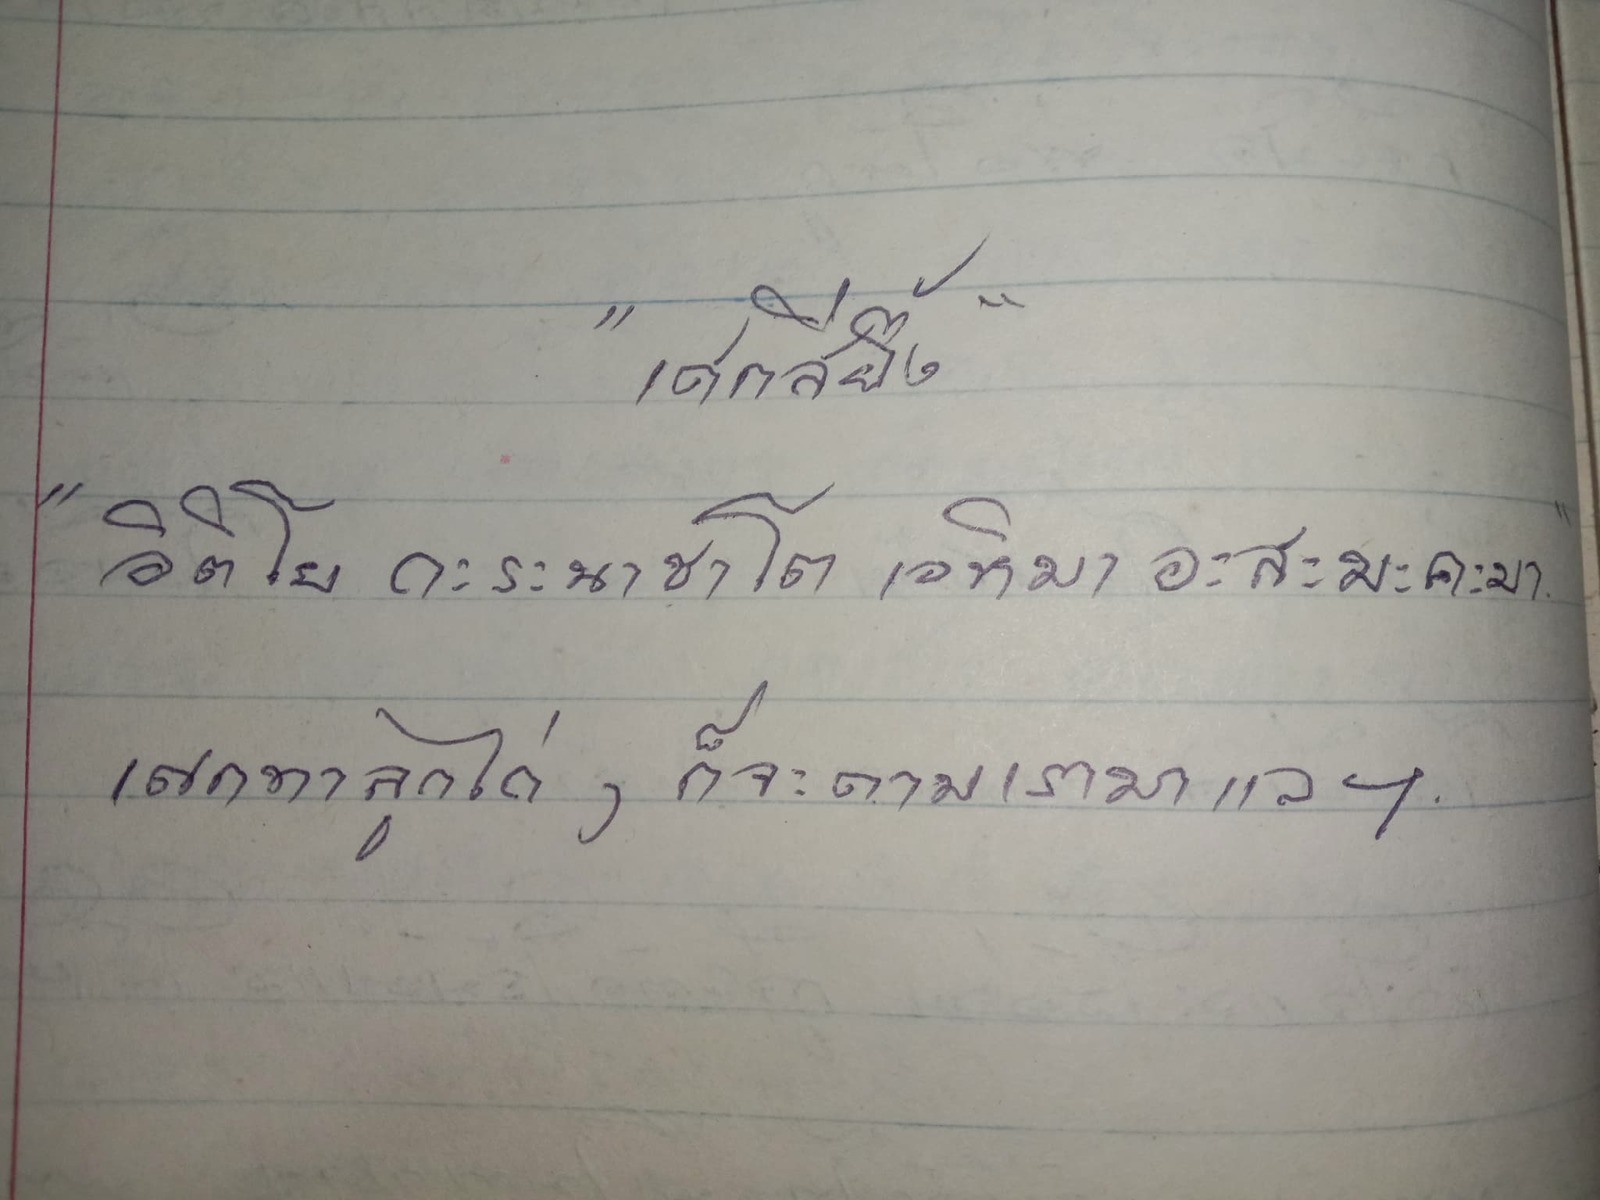 "เศกสีผึ้ง"
"อิติโย กะระนาชาโต เอหิมา อะสะมะคะมา."
เศกทาลูกไก่ ๆ ก็จะตามเรามาแล ฯ.